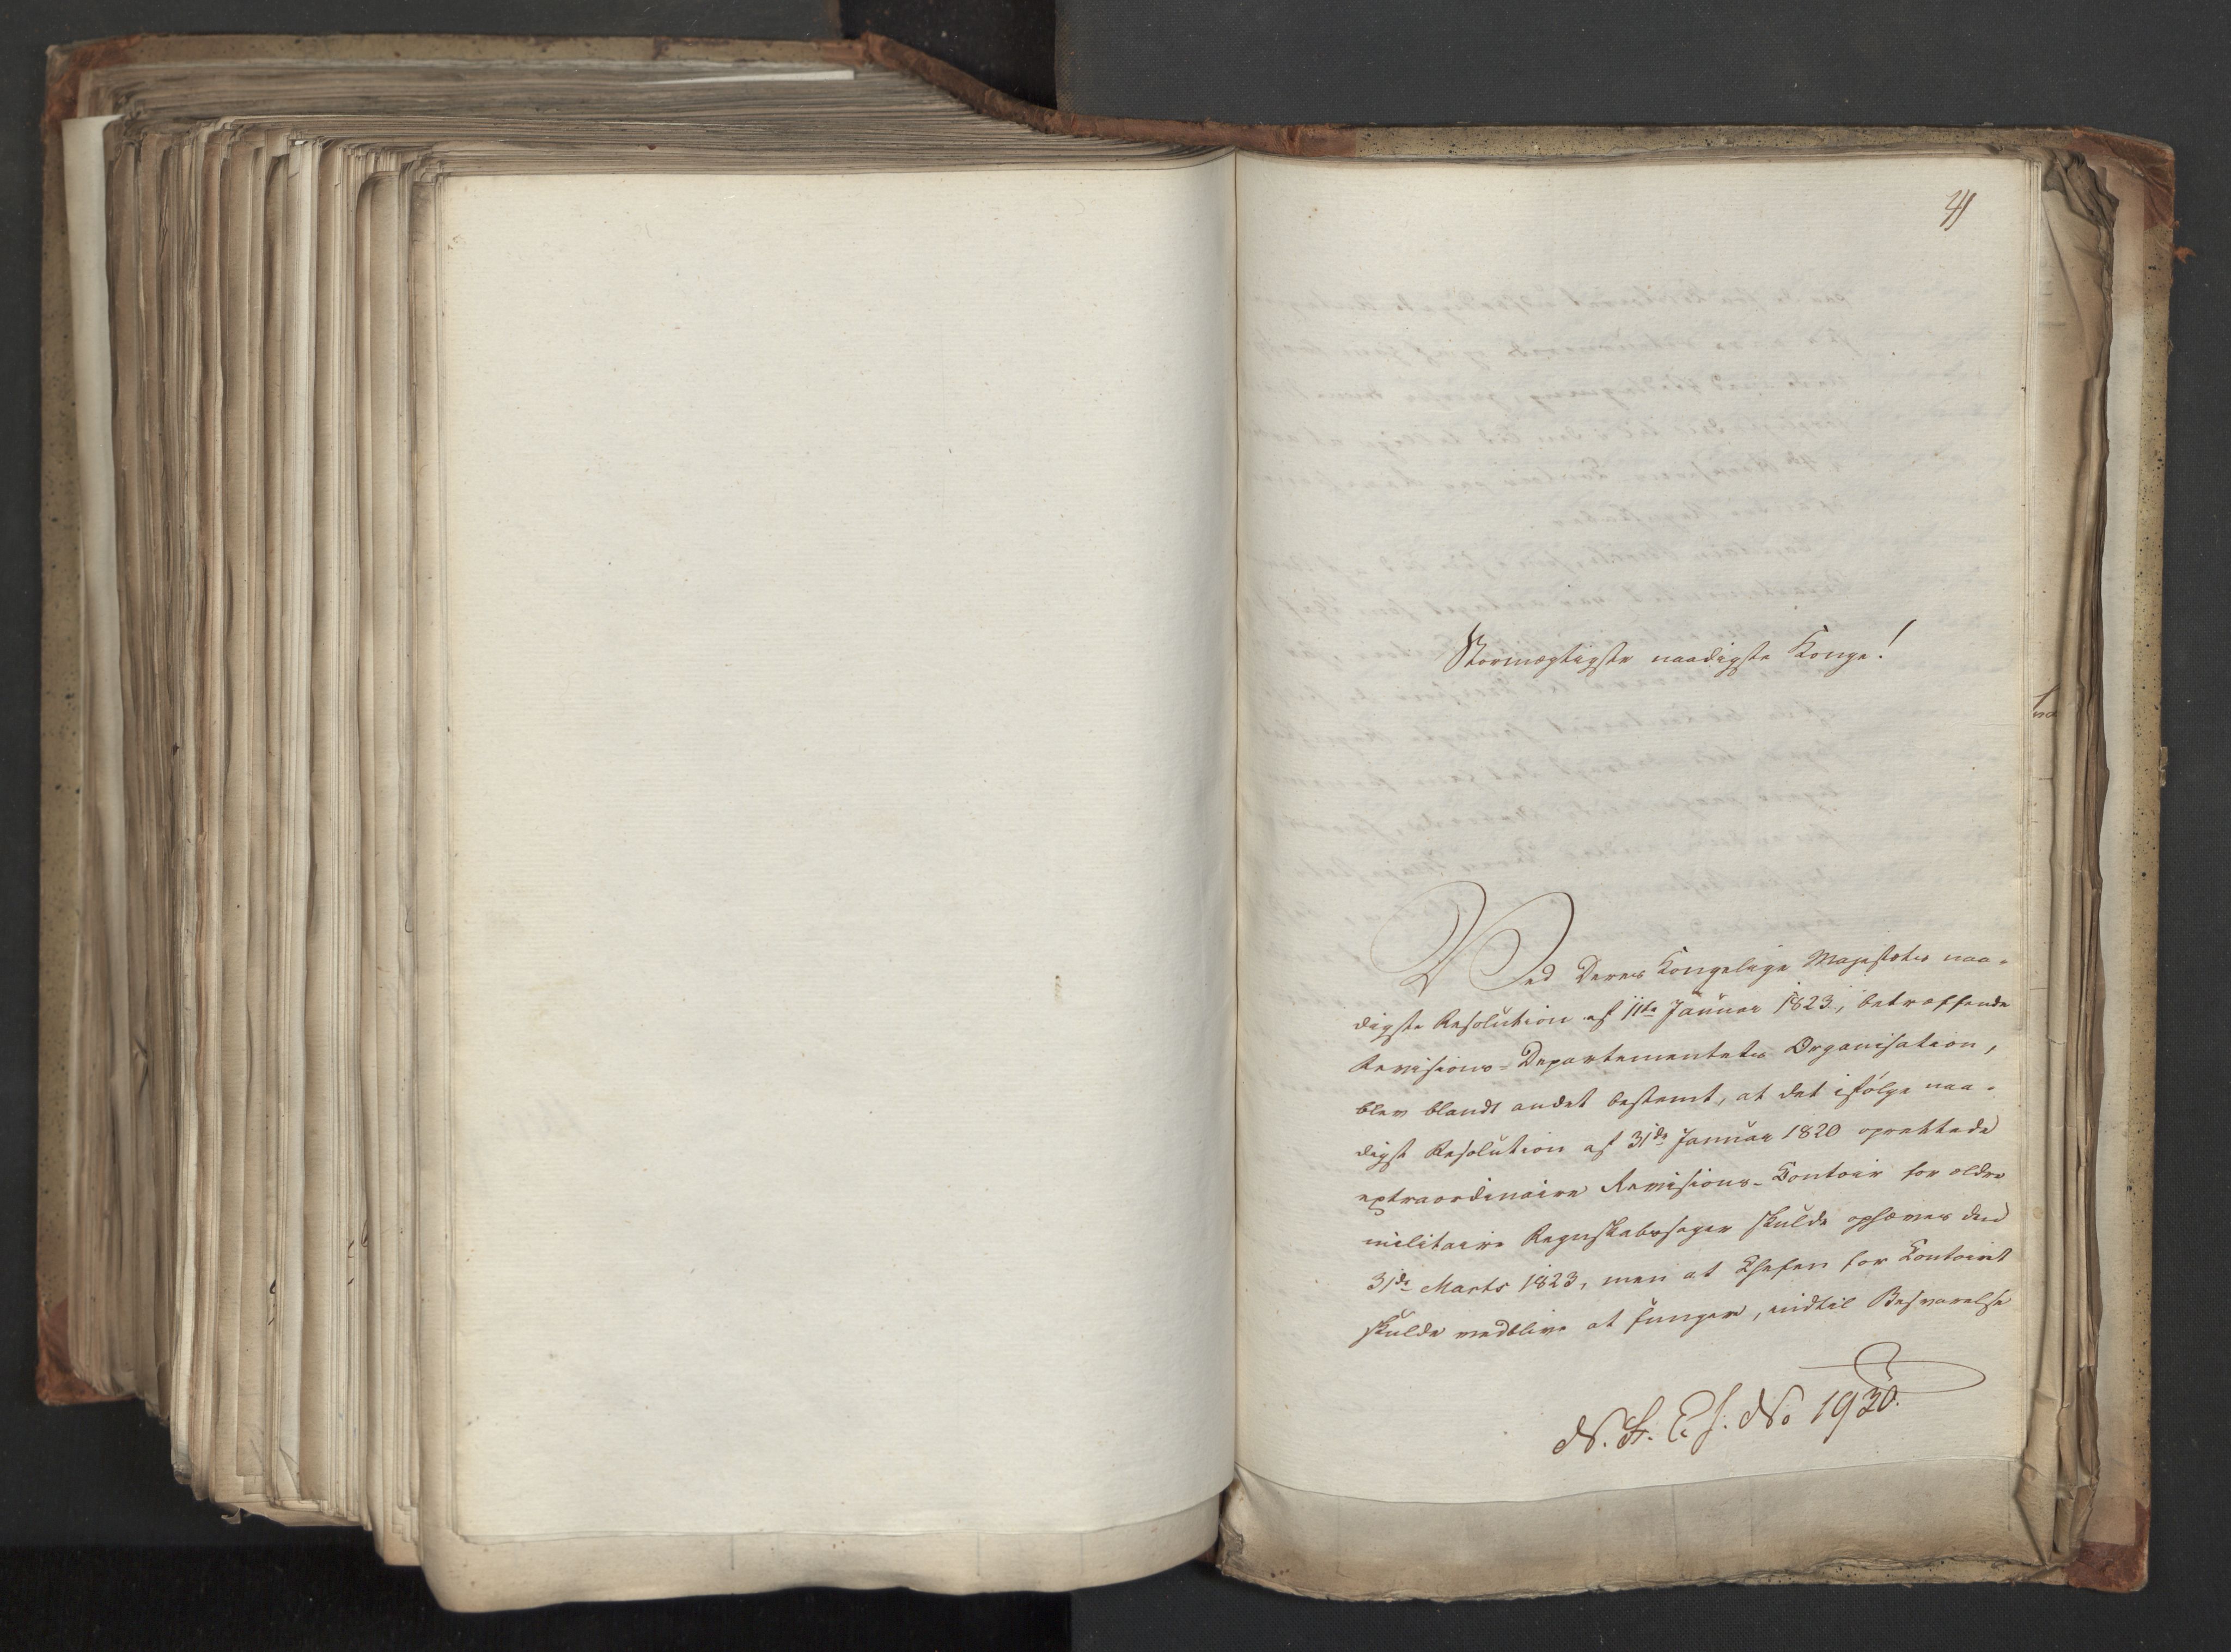 Stormægtigste naadigste Konge!
Ved Deres Kongelige Majestæts naa-
digste Resolution af 11te Januar 1823, betræffende
Revisions-Departementets Organisation,
blev blandt andet bestemt, at det ifølge naa-
digst Resolution af 31de Januar 1820 oprettede
extraordinaire Revisions-Contoir for ældre
militaire Regnskabssager skulde ophæves den
31de Marts 1823, men at Chefen for Contoiret
skulde vedblive at fungere, indtil Besvarelse
N. St. E. J. No 1930.